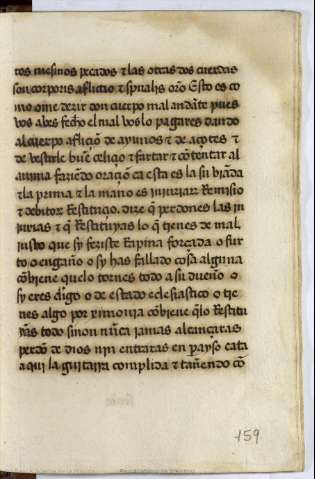 tos mesmos pecados & las otras dos cuerdas
son corporis aflictio & spũalis orõ Esto es co
mo ome dezir don cuerpo mal andãte pues
vos abes fecho el mal vos lo pagares dando
al cuerpo afliciõ de ayunos & de açotes &
de vestirle buẽ çeliçio & fartar & cõtentar al
anima faziẽdo oraçiõ ca esta es la su viãda
& la prima & la mano es iniuriarũ Remisio
& debitorũ Restitutio. dize q̃ perdones las in
iurias & q̃ Restituyas lo q̃ tienes de mal,
iusto que sy feziste Rapina forçada o fur
to o engaño o sy has fallado cosa alguna
cõbiene quelo tornes todo a su dueño o
sy eres clẽrigo o de estado eclesiastico o tie
nes algo por ximonia cõbiene q̃lo Restitu
yas todo sinon nũca jamas alcançaras
perdõ de dios nin entraras en parayso cata
aqui la guitarra complida & tañendo cõ
159